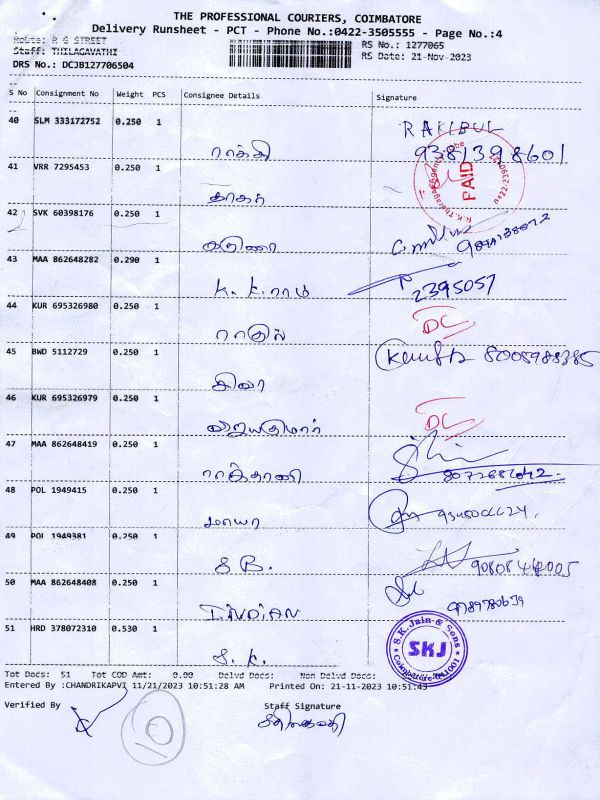 THE PROFESSIONAL COURIERS, COIMBATORE
Delivery Runsheet - PCT - Phone No.:0422-3505555 - Page No.:4
Route: R G STREET
Staff: THILAGAVATHI
DRS No.: DCJB127706504
RS No.: 1277065
RS Date: 21-Nov-2023
S No Consignment No Weight PCS Consignee Details Signature
40 SLM 333172752 0.250 1 RAKIBUL
ராக்கி 9381398601
41 VRR 7295453 0.250 1
தாகர்
PAID
42 SVK 60398176 0.250 1
கருணா
43 MAA 862648282 0.290 1
K. K. ராம் 2395057
44 KUR 695326980 0.250 1
ராகுல் DC
45 BWD 5112729 0.250 1
சிவா 8005988385
46 KUR 695326979 0.250 1
விஜயகுமார் DC
47 MAA 862648419 0.250 1
ராத்தாணி
48 POL 1949415 0.250 1
மாயா
49 POL 1949381 0.250 1
S B.
50 MAA 862648408 0.250 1
INDIAN
51 HRD 378072310 0.530 1
S. K.
S.K.Jain & Sons
SKJ
Coimbatore-641001
Tot Docs: 51 Tot COD Amt: 0.00 Delvd Docs: Non Delvd Docs:
Entered By :CHANDRIKAPVI 11/21/2023 10:51:28 AM Printed On: 21-11-2023 10:51:43
Verified By Staff Signature
10